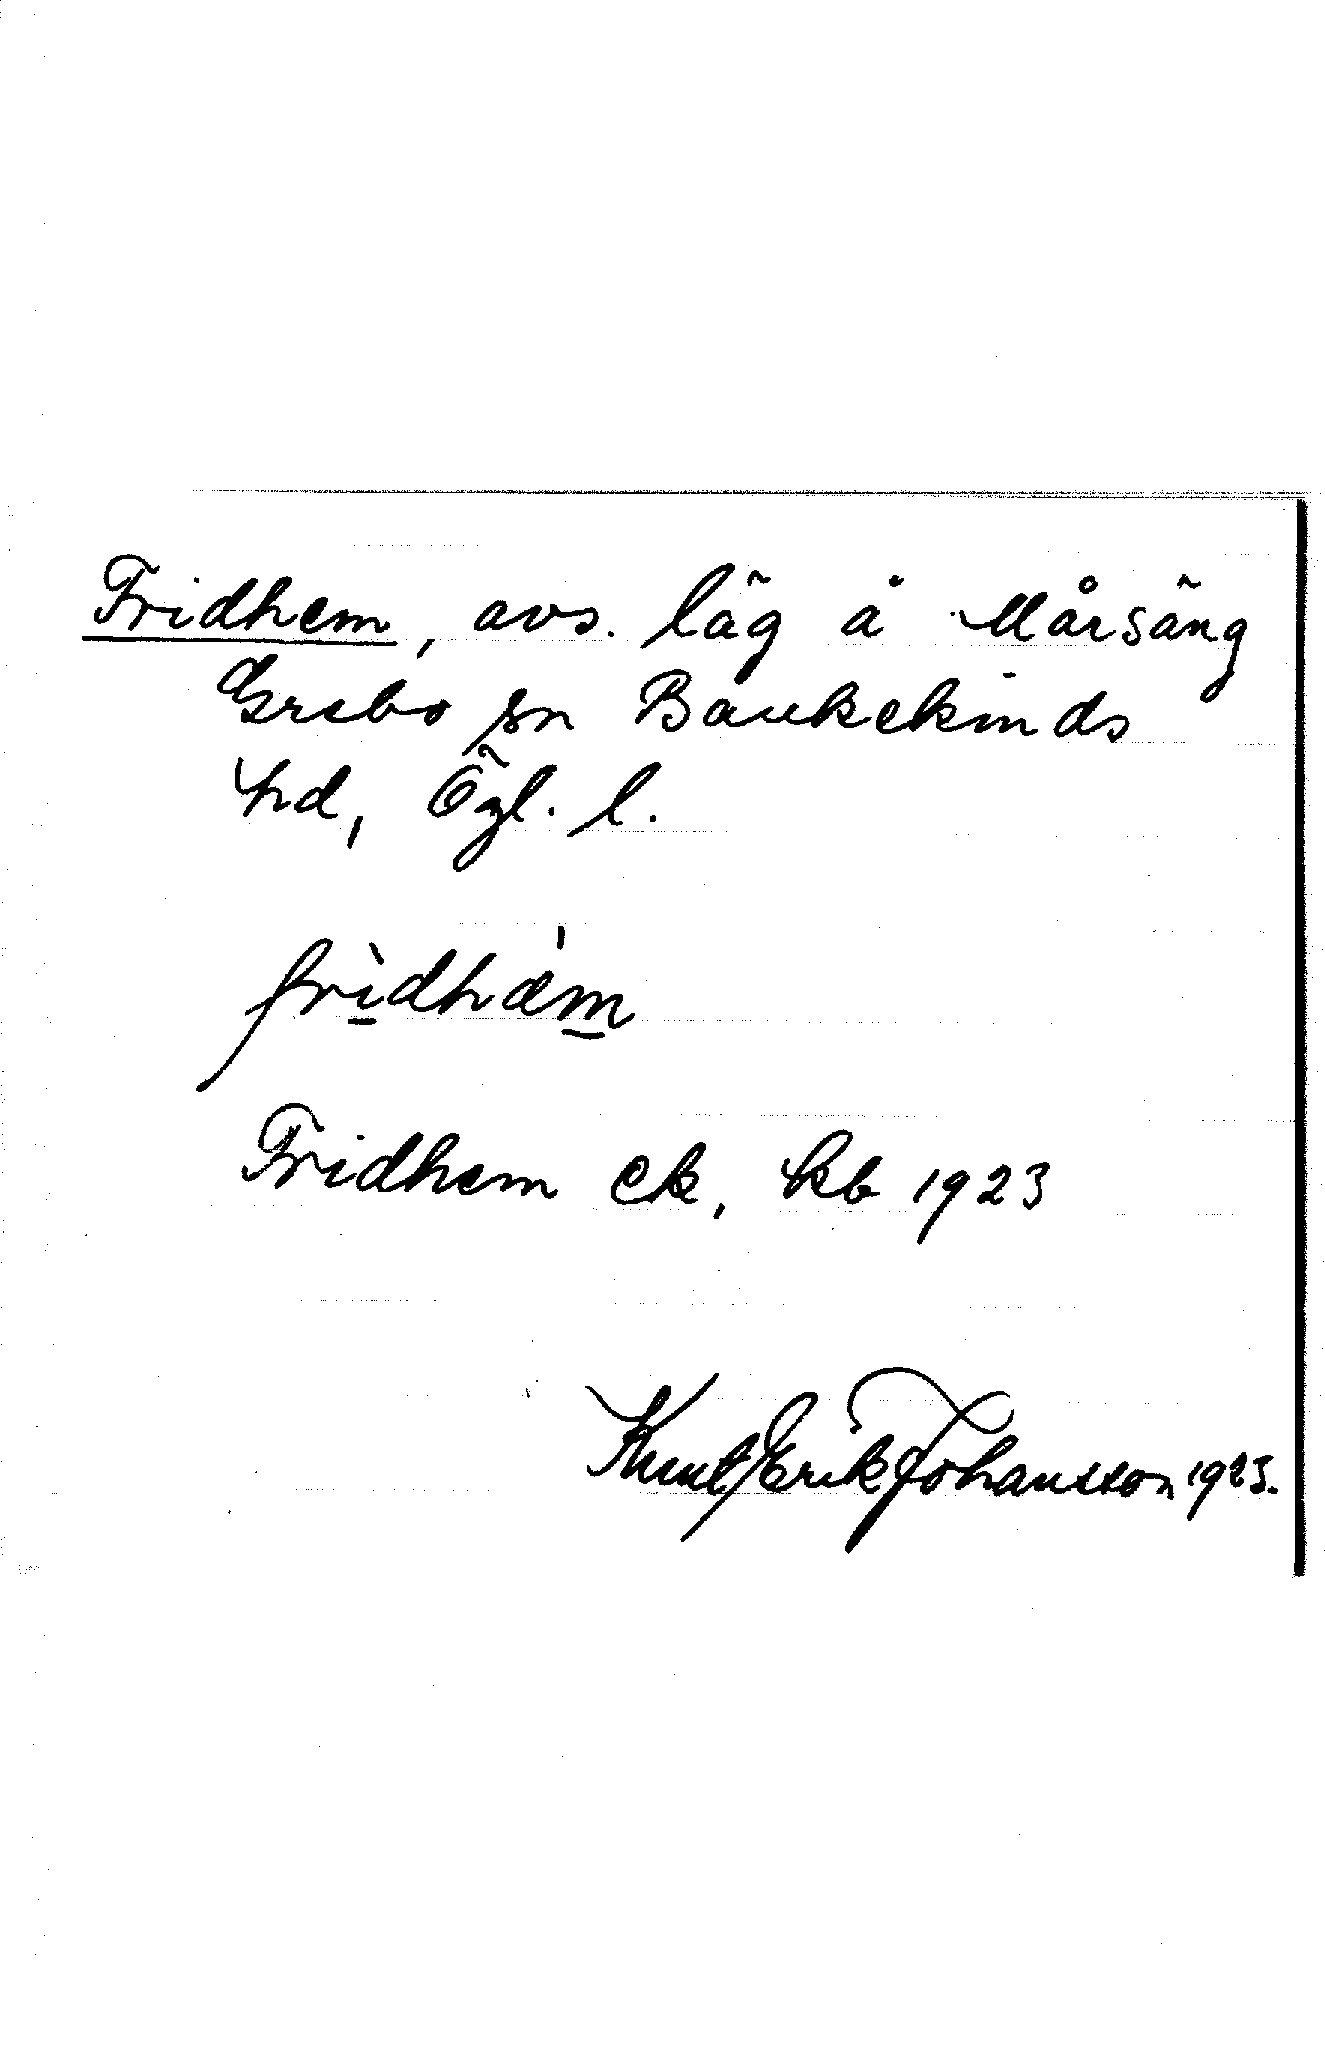 Fridhem, avs. läg å Mårsäng
Grebo sn Bankekinds
hd, Ögl. l.
frìdhæ̀m
Fridhem ek, kb 1923
Knut Erik Johansson 1923.